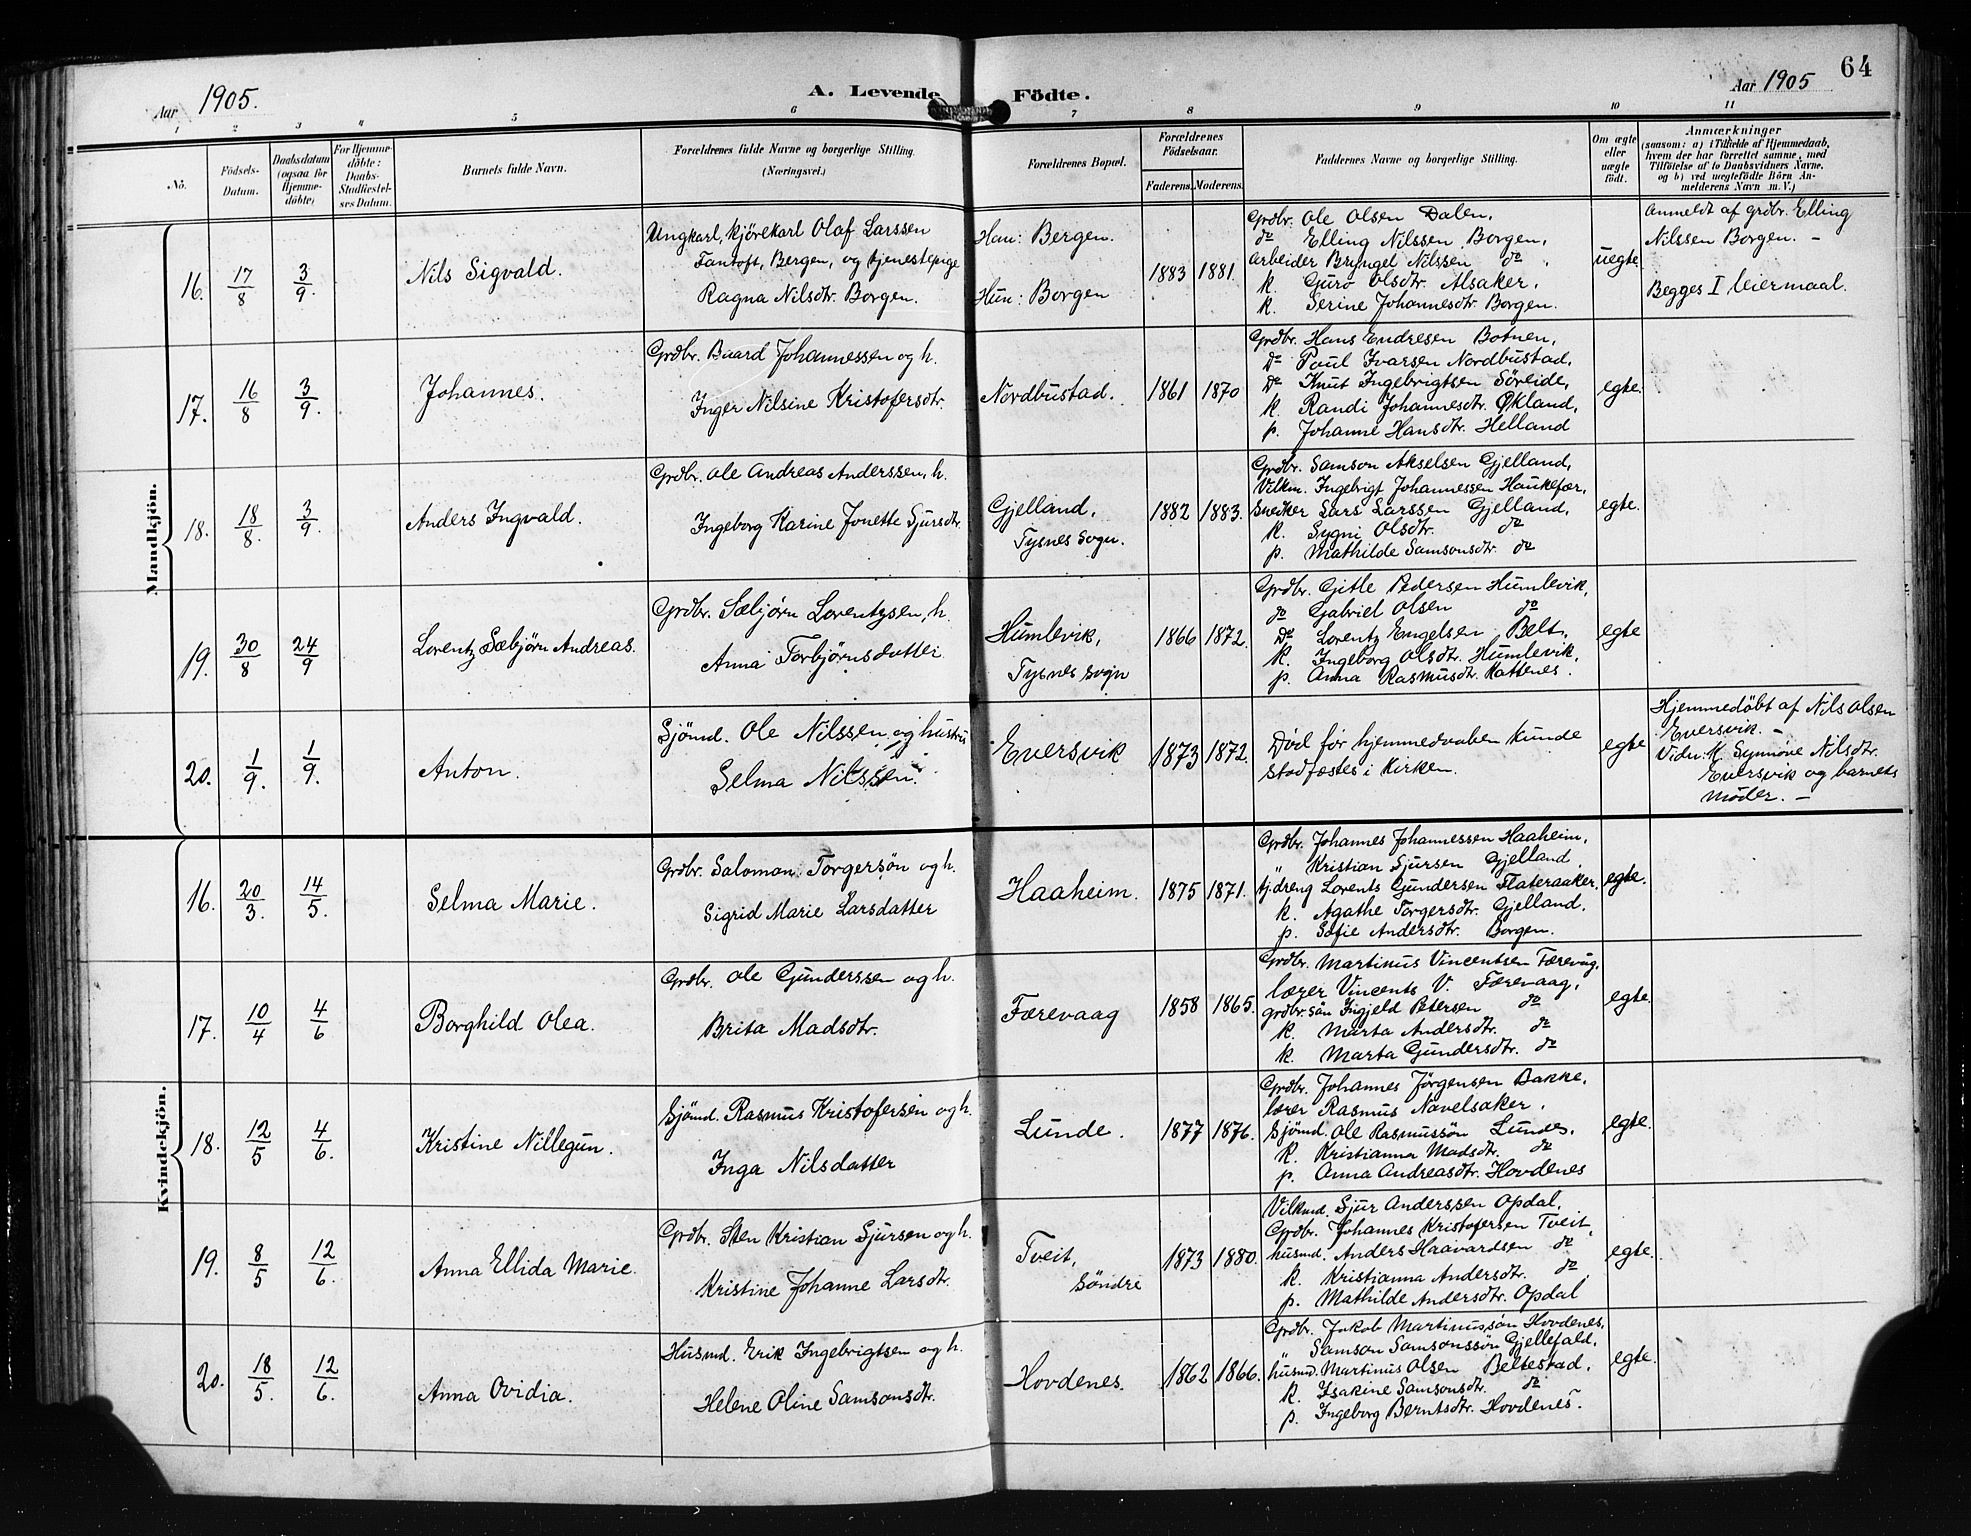 64
Aar 1905. A. Levende Födte. Aar 1905
1 2 3 4 5 6 7 8 9 10 11
No.
Födsels-Datum.
Daabsdatum (ogsaa for Hjemmedöbte)
For Hjemmedöbte: Daabs-Stadfæstelses Datum.
Barnets fulde Navn.
Forældrenes fulde Navne og borgerlige Stilling. (Næringsvei.)
Forældrenes Bopæl.
Forældrenes Födselsaar.
Faderens. Moderens.
Faddernes Navne og borgerlige Stilling.
Om ægte eller uægte födt.
Anmærkninger
(saasom: a) i Tilfælde af Hjemmedaab,
hvem der har forrettet samme, med
Tilföielse af to Daabsvidners Navne.
og b) ved uægtefödte Börn An-
melderens Navn m. V.)
Mandkjön.
16. 17/8 3/9. Nils Sigvald.
Ungkarl, kjörekarl Olaf Larssen
Fantoft, Bergen, og tjenestepige
Ragna Nilsdtr. Borgen.
Han: Bergen.
Hun: Borgen
1883 1881.
Grdbr. Ole Olsen Dalen.
do Elling Nilssen Borgen.
Arbeider Bryngel Nilssen do.
K. Guro Olsdtr. Alsaker.
K. Serine Johannesdtr. Borgen.
uegte.
Anmeldt af grdbr. Elling
Nilssen Borgen. –
Begges I leiermaal.
17. 16/8 3/9. Johannes.
Grdbr. Baard Johannessen og h.
Inger Nilsine Kristofersdtr.
Nordbustad.
1861 1870
Grdbr. Hans Endresen Botnen,
Do Paul Ivarsen Nordbustad.
Do Knut Ingebrigtsen Söreide,
K. Randi Johannesdtr. Økland,
p. Johanne Hansdtr. Helland
egte.
18. 18/8. 3/9. Anders Ingvald.
Grdbr. Ole Andreas Anderssen, h.
Ingeborg Karine Jonette Sjursdtr.
Gjelland,
Tysnes Sogn.
1882 1883.
Grdbr. Samson Akselsen Gjelland,
Vilkm. Ingebrigt Johannessen Haukefær,
Snedker Lars Larssen Gjelland,
K. Sygni Olsdtr. do
p. Mathilde Samsonsdtr. do
egte.
19. 30/8 24/9 Lorentz Sæbjörn Andreas.
Grdbr. Sæbjörn Lorentzsen, h.
Anna Torbjörnsdatter
Humlevik,
Tysnes sogn
1866 1872.
Grdbr. Gitle Pedersen Humlevik,
do Gabriel Olsen do
Do Lorentz Engelsen Belt,
K. Ingeborg Olsdtr. Humlevik,
p. Anna Rasmusdtr. Kattenes.
egte
20. 1/9. 1/9. Anton.
Sjömd. Ole Nilssen og hustru
Selma Nilssen.
Eversvik
1873 1872.
Död för hjemmedaaben kunde
stadfæstes i Kirken.
egte
Hjemmedöbt af Nils Olsen
Eversvik. –
Vidn: K. Synnöve Nilsdtr.
Eversvik og barnets
Moder. –
Kvindekjön.
16. 20/3. 14/5. Selma Marie.
Grdbr. Saloman Torgersön og h.
Sigrid Marie Larsdatter
Haaheim.
1875 1871.
Grdbr. Johannes Johannessen Haaheim,
" Kristian Sjursen Gjelland,
tj.dreng Lorents Gundersen Flateraaker.
K. Agathe Torgersdtr. Gjelland.
p. Sofie Andersdtr. Borgen.
egte.
17. 10/4 4/6 Borghild Olea.
Grdbr. Ole Gunderssen og h.
Brita Madsdtr.
Færevaag
1858 1865.
Grdbr. Martinus Vincentsen Færevåg,
lærer Vincents V. Færevaag,
grdbr.sön Ingjeld Petersen do
K. Marta Andersdtr. do
K. Marta Gundersdtr. do
egte.
18. 12/5 4/6. Kristine Nillegun.
Sjömd. Rasmus Kristofersen og h.
Inga Nilsdatter
Lunde.
1877 1876.
Grdbr. Johannes Jörgensen Bakke,
lærer Rasmus Navelsaker.
Sjömd. Ole Rasmussön Lundes.
K. Kristianna Madsdtr. do
p. Anna Andreasdtr. Hovdenes
egte.
19. 8/5 12/6. Anna Ellida Marie.
Grdbr. Sten Kristian Sjursen og h.
Kristine Johanne Larsdtr.
Tveit,
Söndre
1873 1880.
Vilkmd. Sjur Anderssen Opdal,
Grdbr. Johannes Kristofersen Tveit,
husmd. Anders Haavardsen do
K. Kristianna Andersdtr. do.
p. Mathilde Andersdtr. Opdal
egte.
20. 18/5. 12/6. Anna Ovidia.
Husmd. Erik Ingebrigtsen og h.
Helene Oline Samsonsdtr.
Hovdenes.
1862 1866.
Grdbr. Jakob Martinussön Hovdenes,
Samson Samsonssön Gjellefald,
husmd. Martinus Olsen Beltestad,
K. Isakine Samsonsdtr. do
p. Ingeborg Berntsdtr. Hovdenes.
egte.